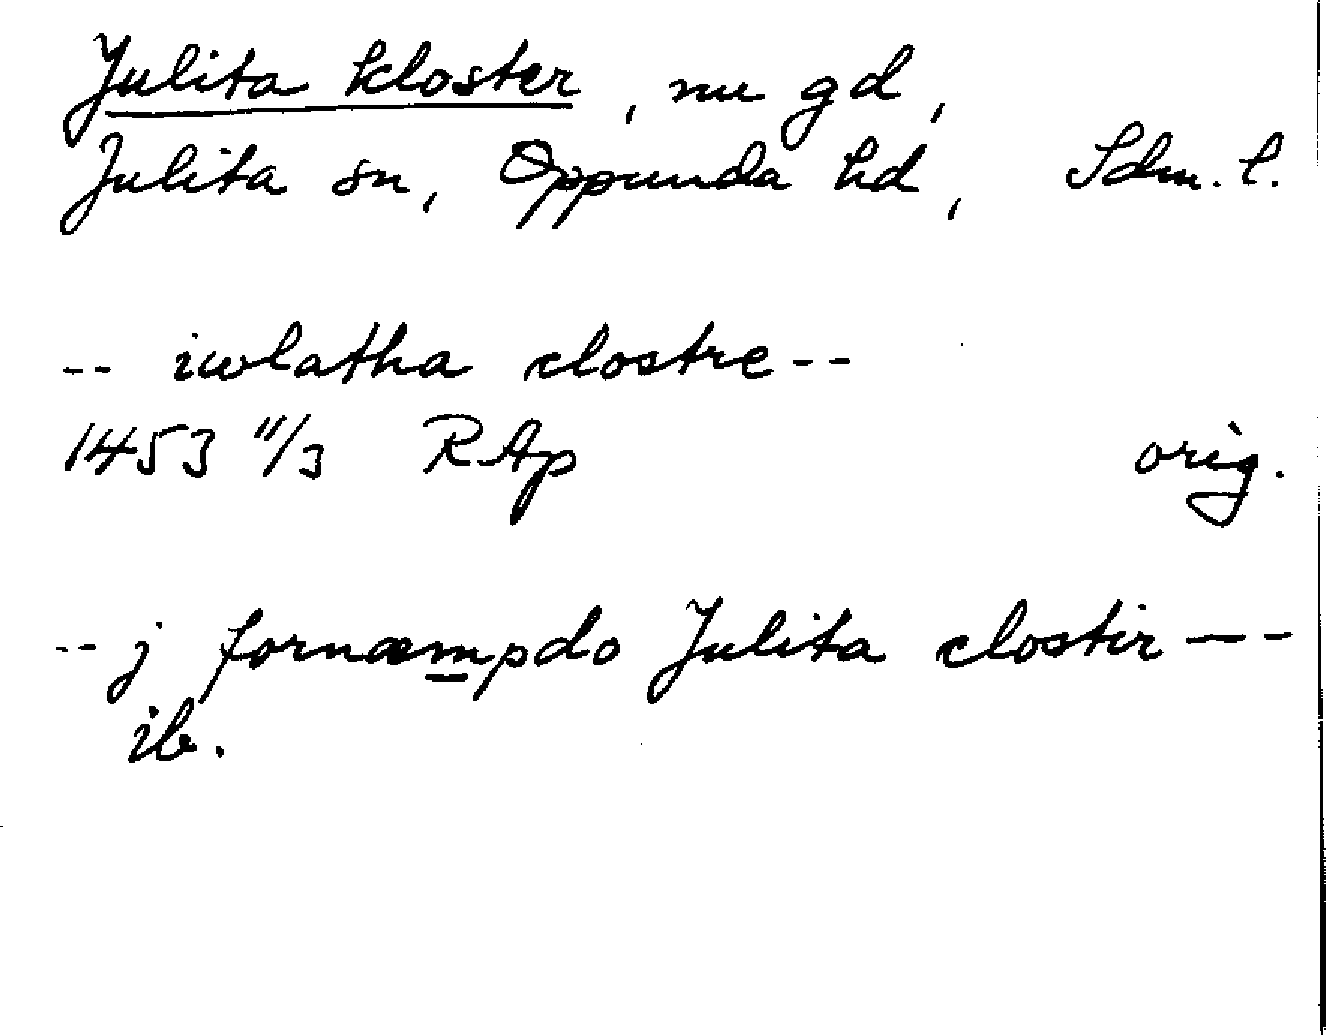 Julita kloster, nu gd,
Julita sn, Oppunda hd, Sdm. l.
-- iwlatha clostre --
1453 11/3 RAp orig.
-- j fornæmpdo Julita clostir ---
ib.